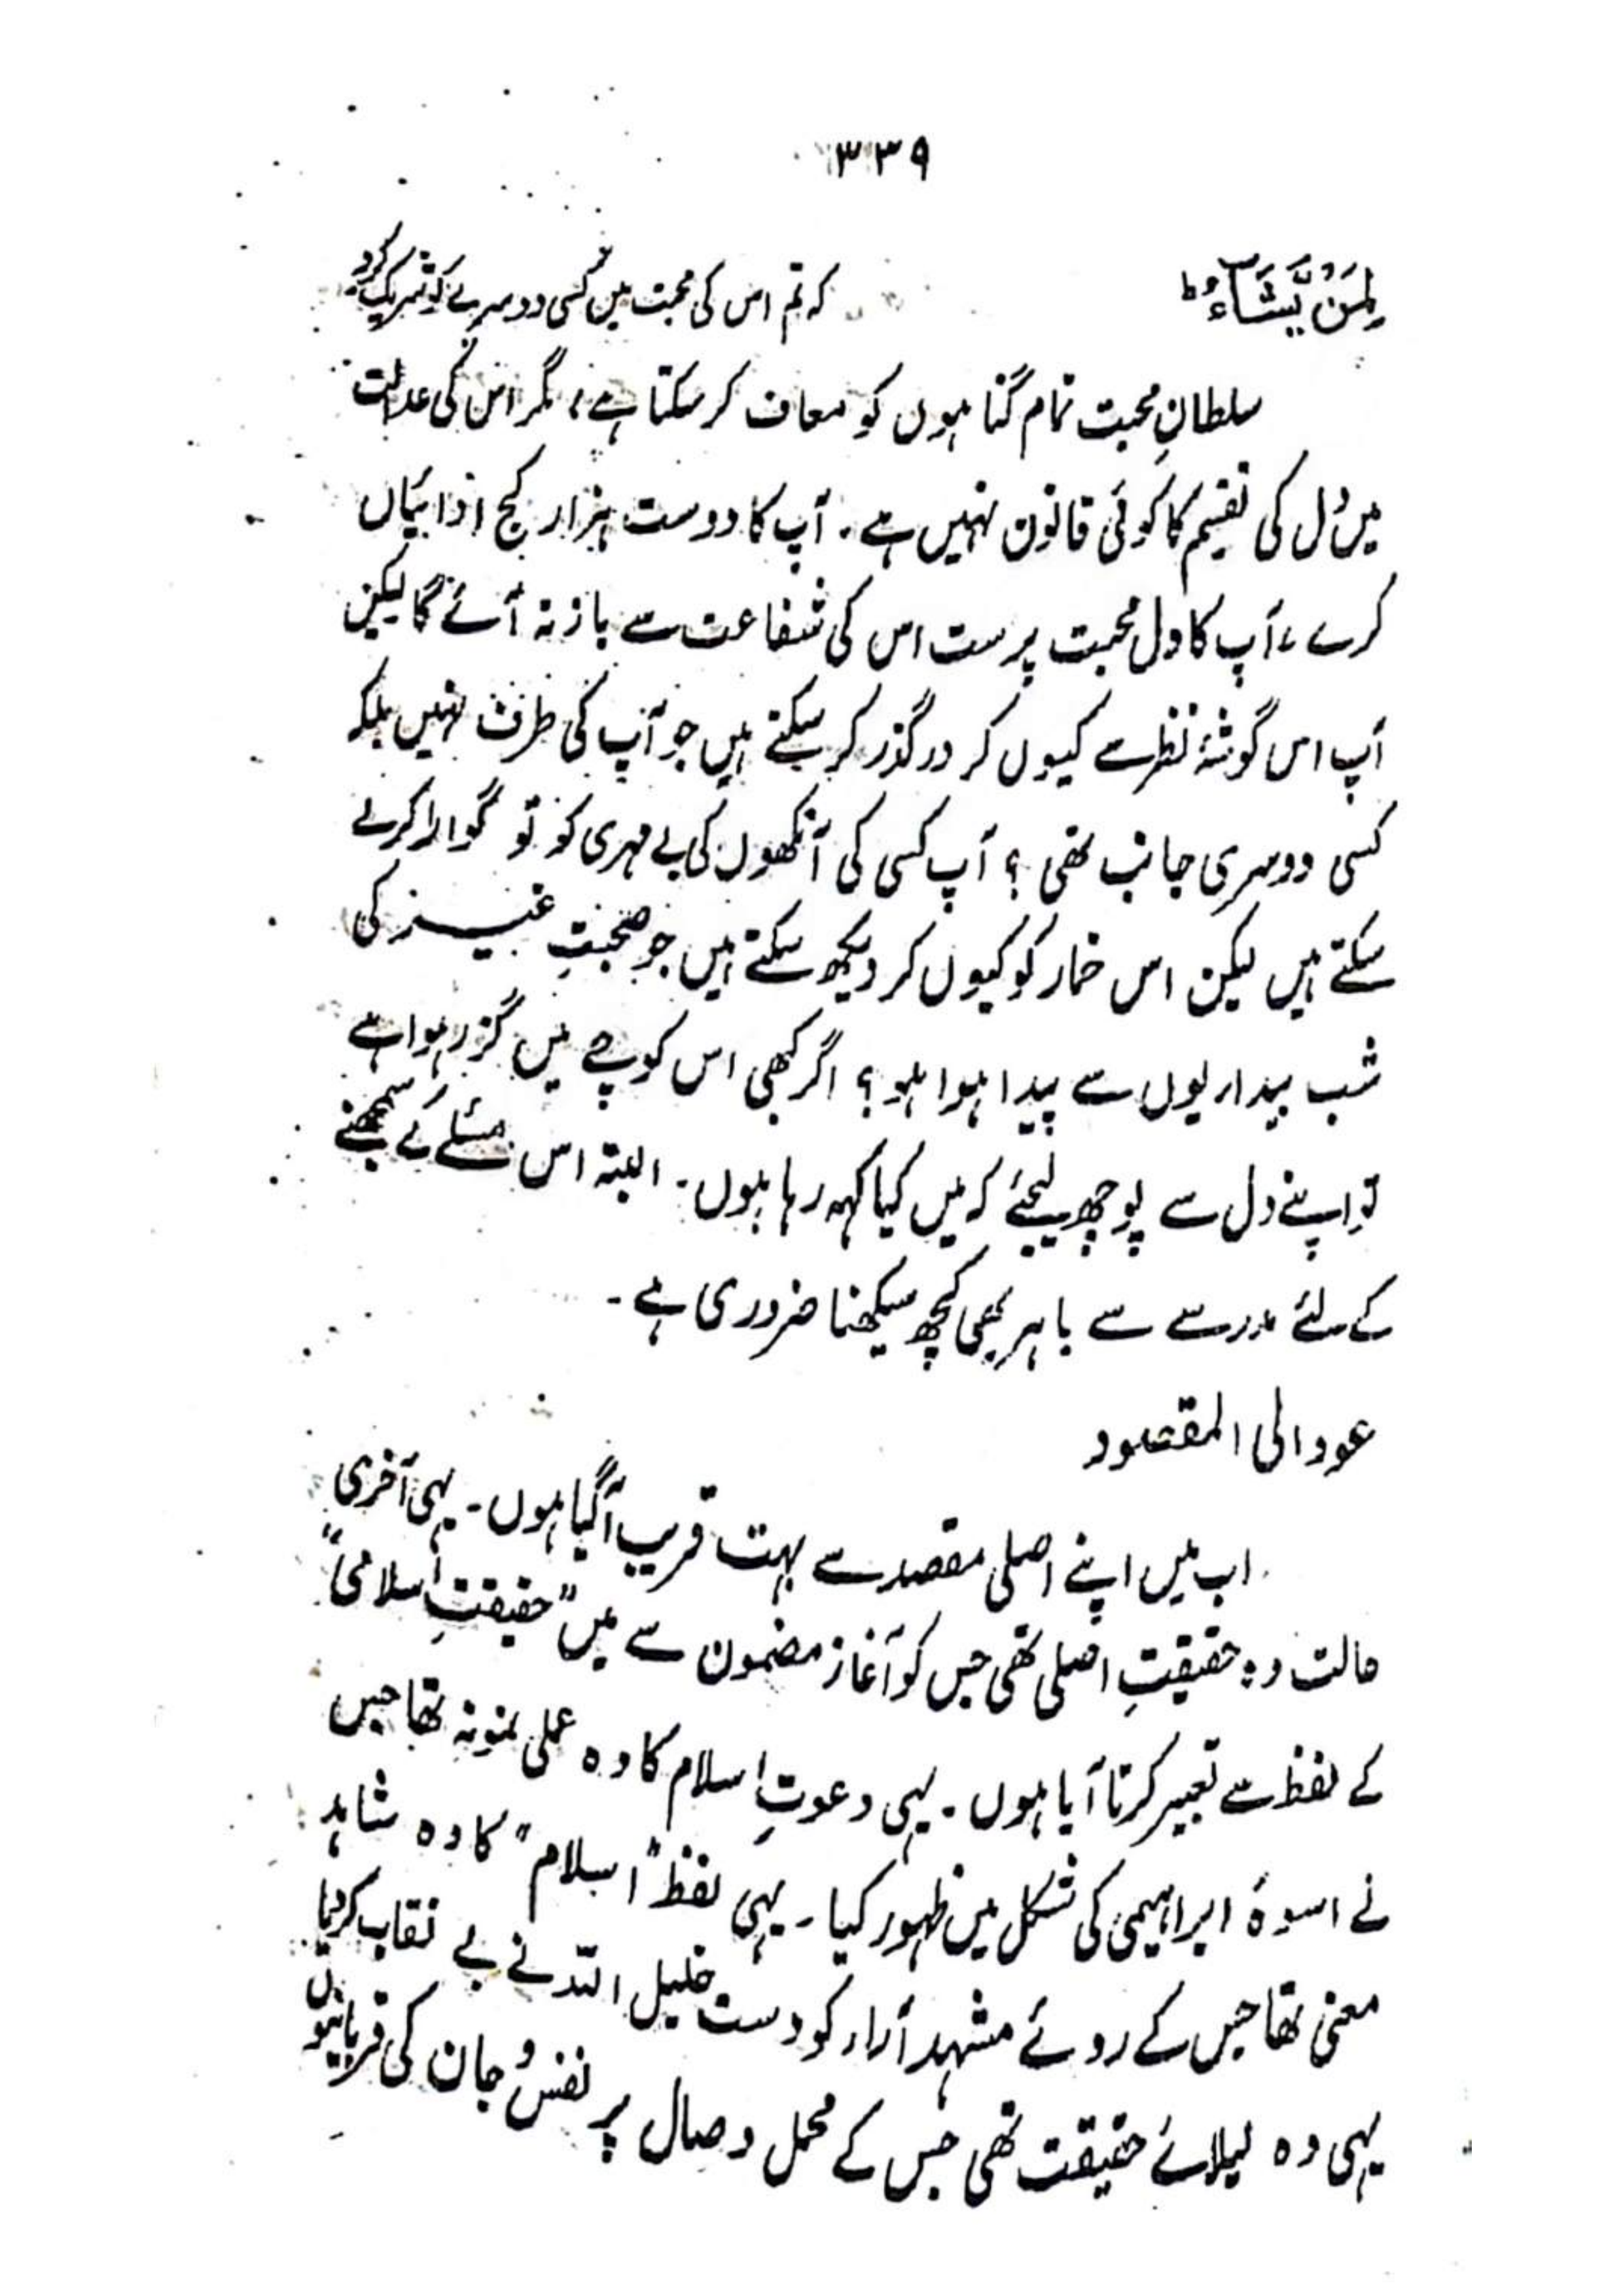 ۳۳۹
لِمَنْ یَّشَآءُط کہ تم اس کی محبت میں کسی دوسرے کو شریک کرو
سلطانِ محبت تمام گناہوں کو معاف کر سکتا ہے، مگر اس کی عدالت
میں دل کی تقسیم کا کوئی قانون نہیں ہے۔ آپ کا دوست ہزار کج ادائیاں
کرے، آپ کا دل محبت پرست اس کی شفاعت سے باز نہ آئے گا لیکن
آپ اس گوشۂ نظر سے کیوں کر درگذر کر سکتے ہیں جو آپ کی طرف نہیں بلکہ
کسی دوسری جانب تھی؟ آپ کسی کی آنکھوں کی بے مہری کو تو گوارا کر لے
سکتے ہیں لیکن اس خمار کو کیوں کر دیکھ سکتے ہیں جو صحبتِ غیر کی
شب بیداریوں سے پیدا ہوا ہو؟ اگر کبھی اس کوچے میں گزر ہوا ہے
تو اپنے دل سے پوچھ لیجئے کہ میں کیا کہہ رہا ہوں۔ البتہ اس مسئلے کے سمجھنے
کے لئے مدرسے سے باہر بھی کچھ سیکھنا ضروری ہے۔
عود الی المقصود
اب میں اپنے اصلی مقصد سے بہت قریب آگیا ہوں۔ یہی آخری
حالت وہ حقیقتِ اصلی تھی جس کو آغاز مضمون سے میں "حقیقتِ اسلامی"
کے لفظ سے تعبیر کرتا آیا ہوں۔ یہی دعوتِ اسلام کا وہ عملی نمونہ تھا جس
نے اسوۂ ابراہیمی کی شکل میں ظہور کیا۔ یہی لفظ "اسلام" کا وہ شاہد
معنی تھا جس کے روئے مشہد آراء کو دست خلیل اللہ نے بے نقاب کردیا
یہی وہ لیلائے حقیقت تھی جس کے محمل وصال پر نفس و جان کی قربانیوں